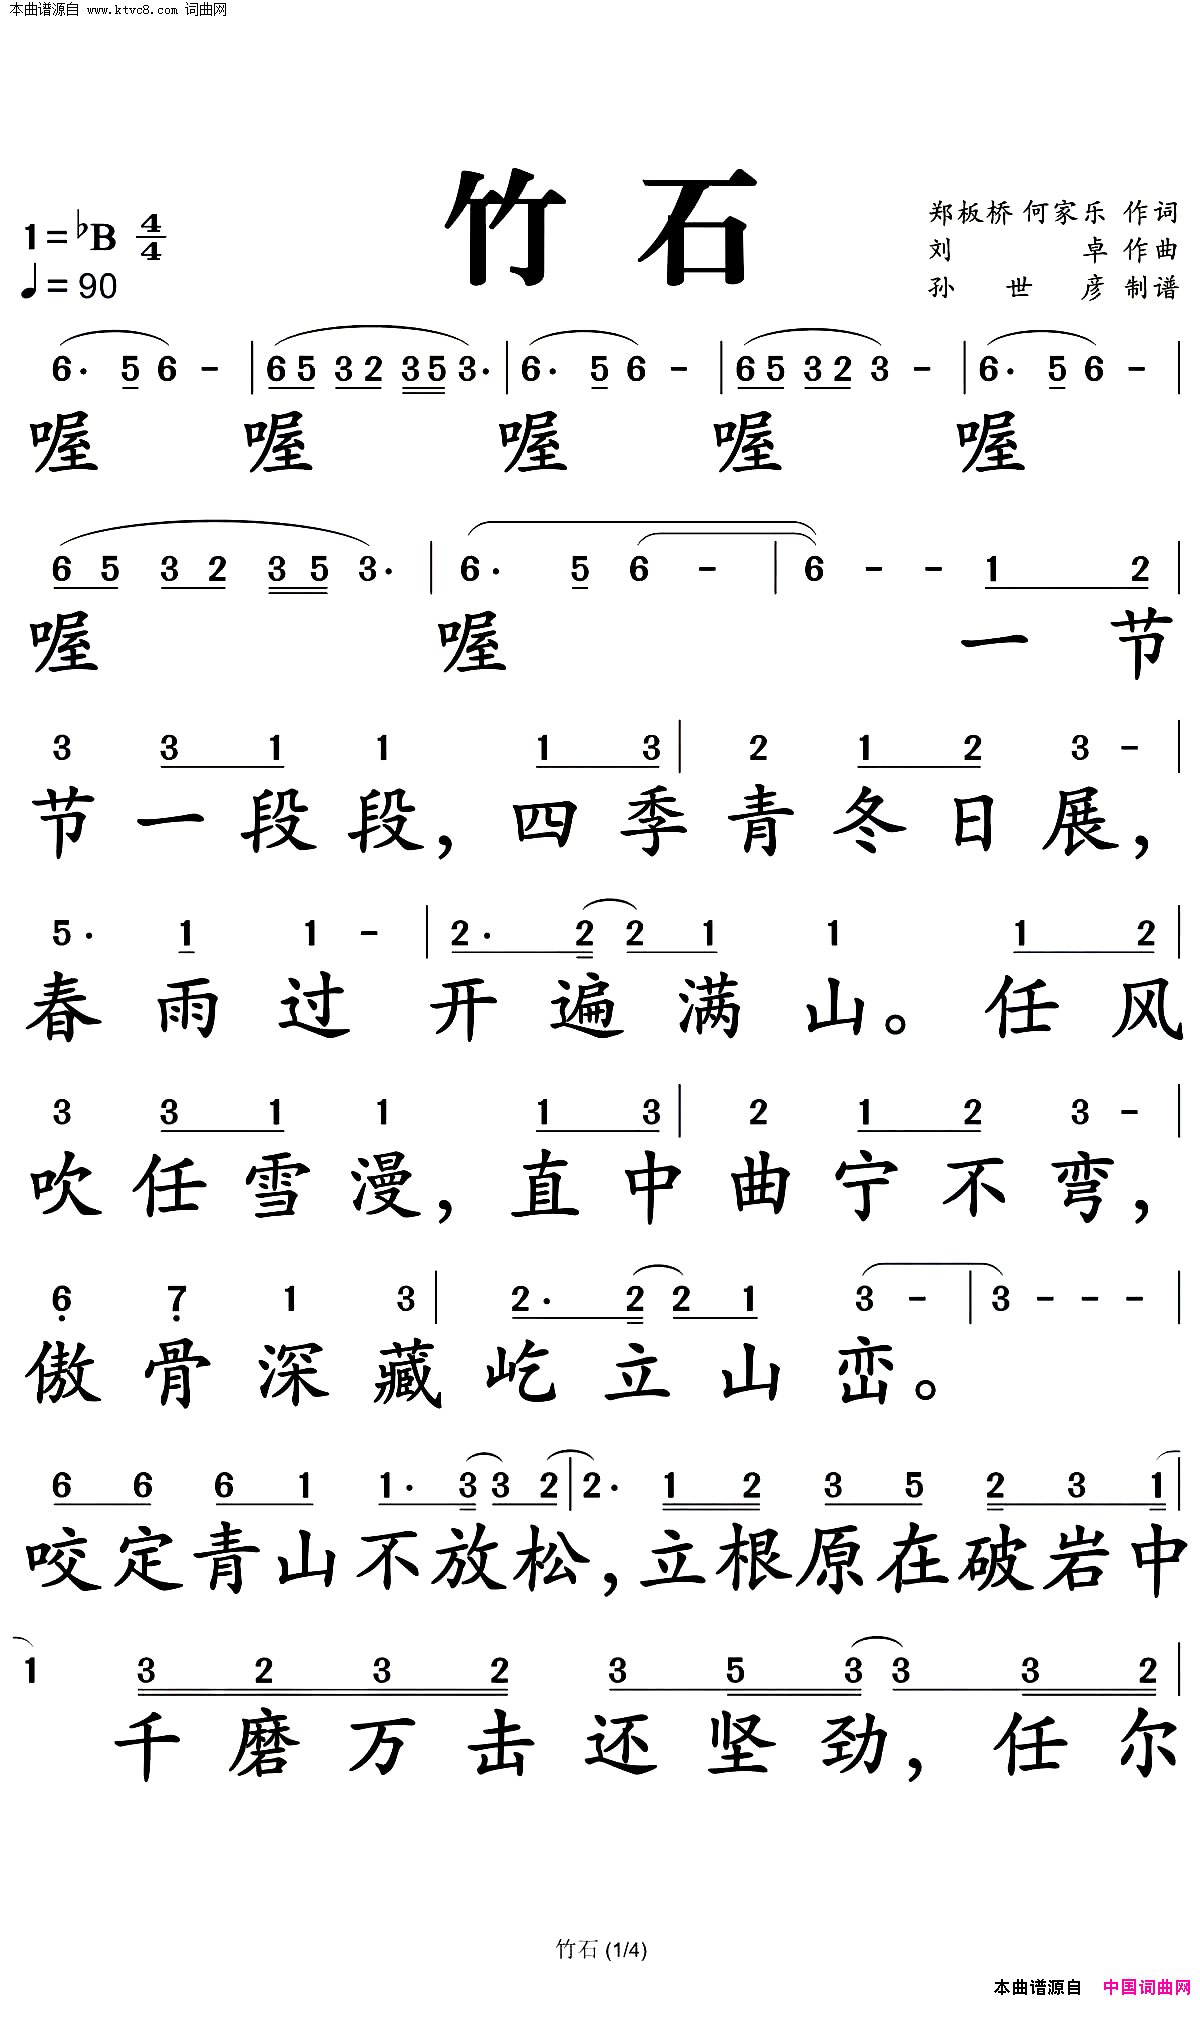 本曲谱源自 www.ktvc8.com 词曲网
竹 石
1=♭B 4/4
♩=90
郑板桥 何家乐 作词
刘 卓 作曲
孙 世 彦 制谱
6· 5 6 - | 6 5 3 2 3 5 3· | 6· 5 6 - | 6 5 3 2 3 - | 6· 5 6 - |
喔 喔 喔 喔 喔
6 5 3 2 3 5 3· | 6· 5 6 - | 6 - - 1 2 |
喔 喔 一 节
3 3 1 1 1 3 | 2 1 2 3 - |
节 一 段 段， 四 季 青 冬 日 展，
5· 1 1 - | 2· 2 2 1 1 1 2 |
春 雨 过 开 遍 满 山。 任 风
3 3 1 1 1 3 | 2 1 2 3 - |
吹 任 雪 漫， 直 中 曲 宁 不 弯，
6̣ 7̣ 1 3 | 2· 2 2 1 3 - | 3 - - - |
傲 骨 深 藏 屹 立 山 峦。
6 6 6 1 1· 3 3 2 | 2· 1 2 3 5 2 3 1 |
咬 定 青 山 不 放 松， 立 根 原 在 破 岩 中
1 3 2 3 2 3 5 3 3 3 2 |
千 磨 万 击 还 坚 劲， 任 尔
竹石 (1/4)
本曲谱源自 中国词曲网